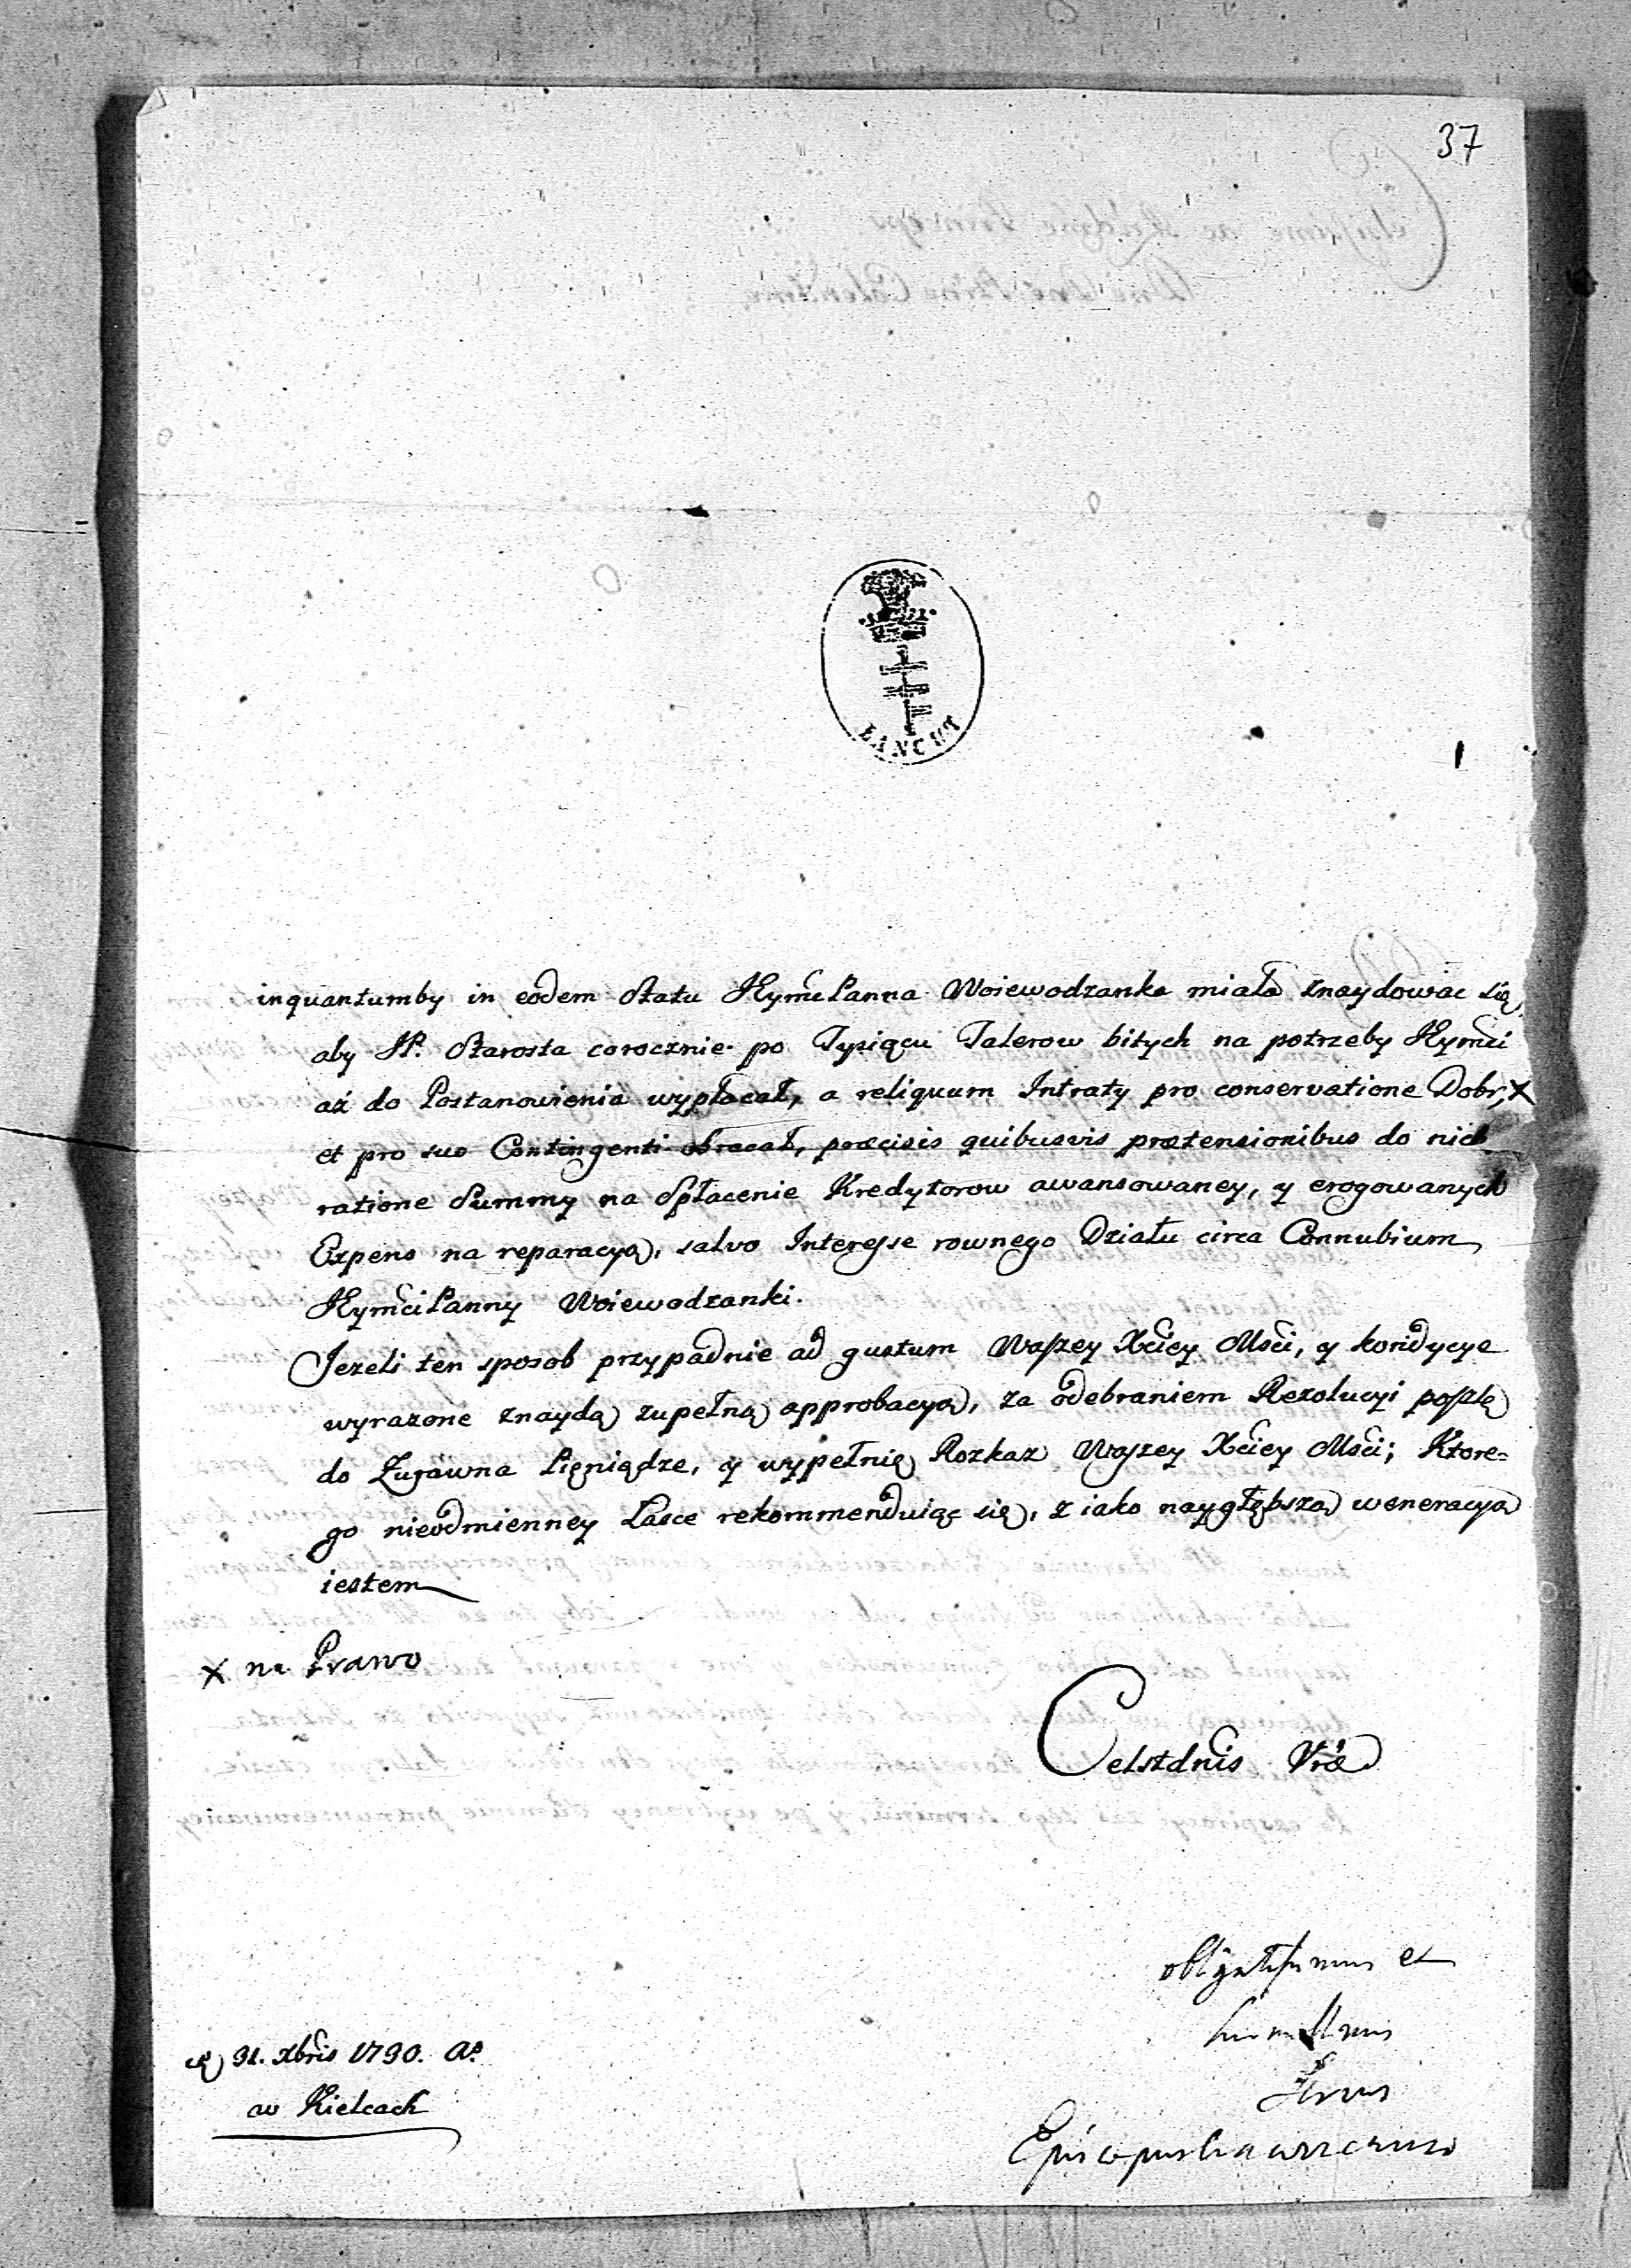 37
ŁAŃCUT
inquantumby in eodem Statu JeymciPanna Woiewodzanka miała znaydowac się,
aby JP. Starosta corocznie po Tysiącu Talerow bitych na potrzeby Jeymci
aż do Postanowienia wypłacał, a reliquum Intraty pro conservatione Dobr, X
et pro suo Contingenti obracał, præcisis quibusvis prætensionibus do nich
ratione Summy na Spłacenie Kredytorow awansowaney, y erogowanych
Expens na reparacyą, salvo Interesse rownego Działu circa Connubium
JeymciPanny Woiewodzanki.
Jezeli ten sposob przypadnie ad gustum Waszey Xciey Mści, y kondycye
wyrazone znaydą zupełną approbacyą, za odebraniem Rezolucyi poszlę
do Zurawna Pieniądze, y wypełnię Rozkaz Waszey Xciey Mści; Ktore=
go nieodmienney Łasce rekommenduiąc się, z iako naygłębszą weneracyą
iestem
X na Prawo
Celstdnis Vræ
obligatissimus et
humillimus
Servus
Episcopus
31. Xbris 1730. Ao.
w Kielcach